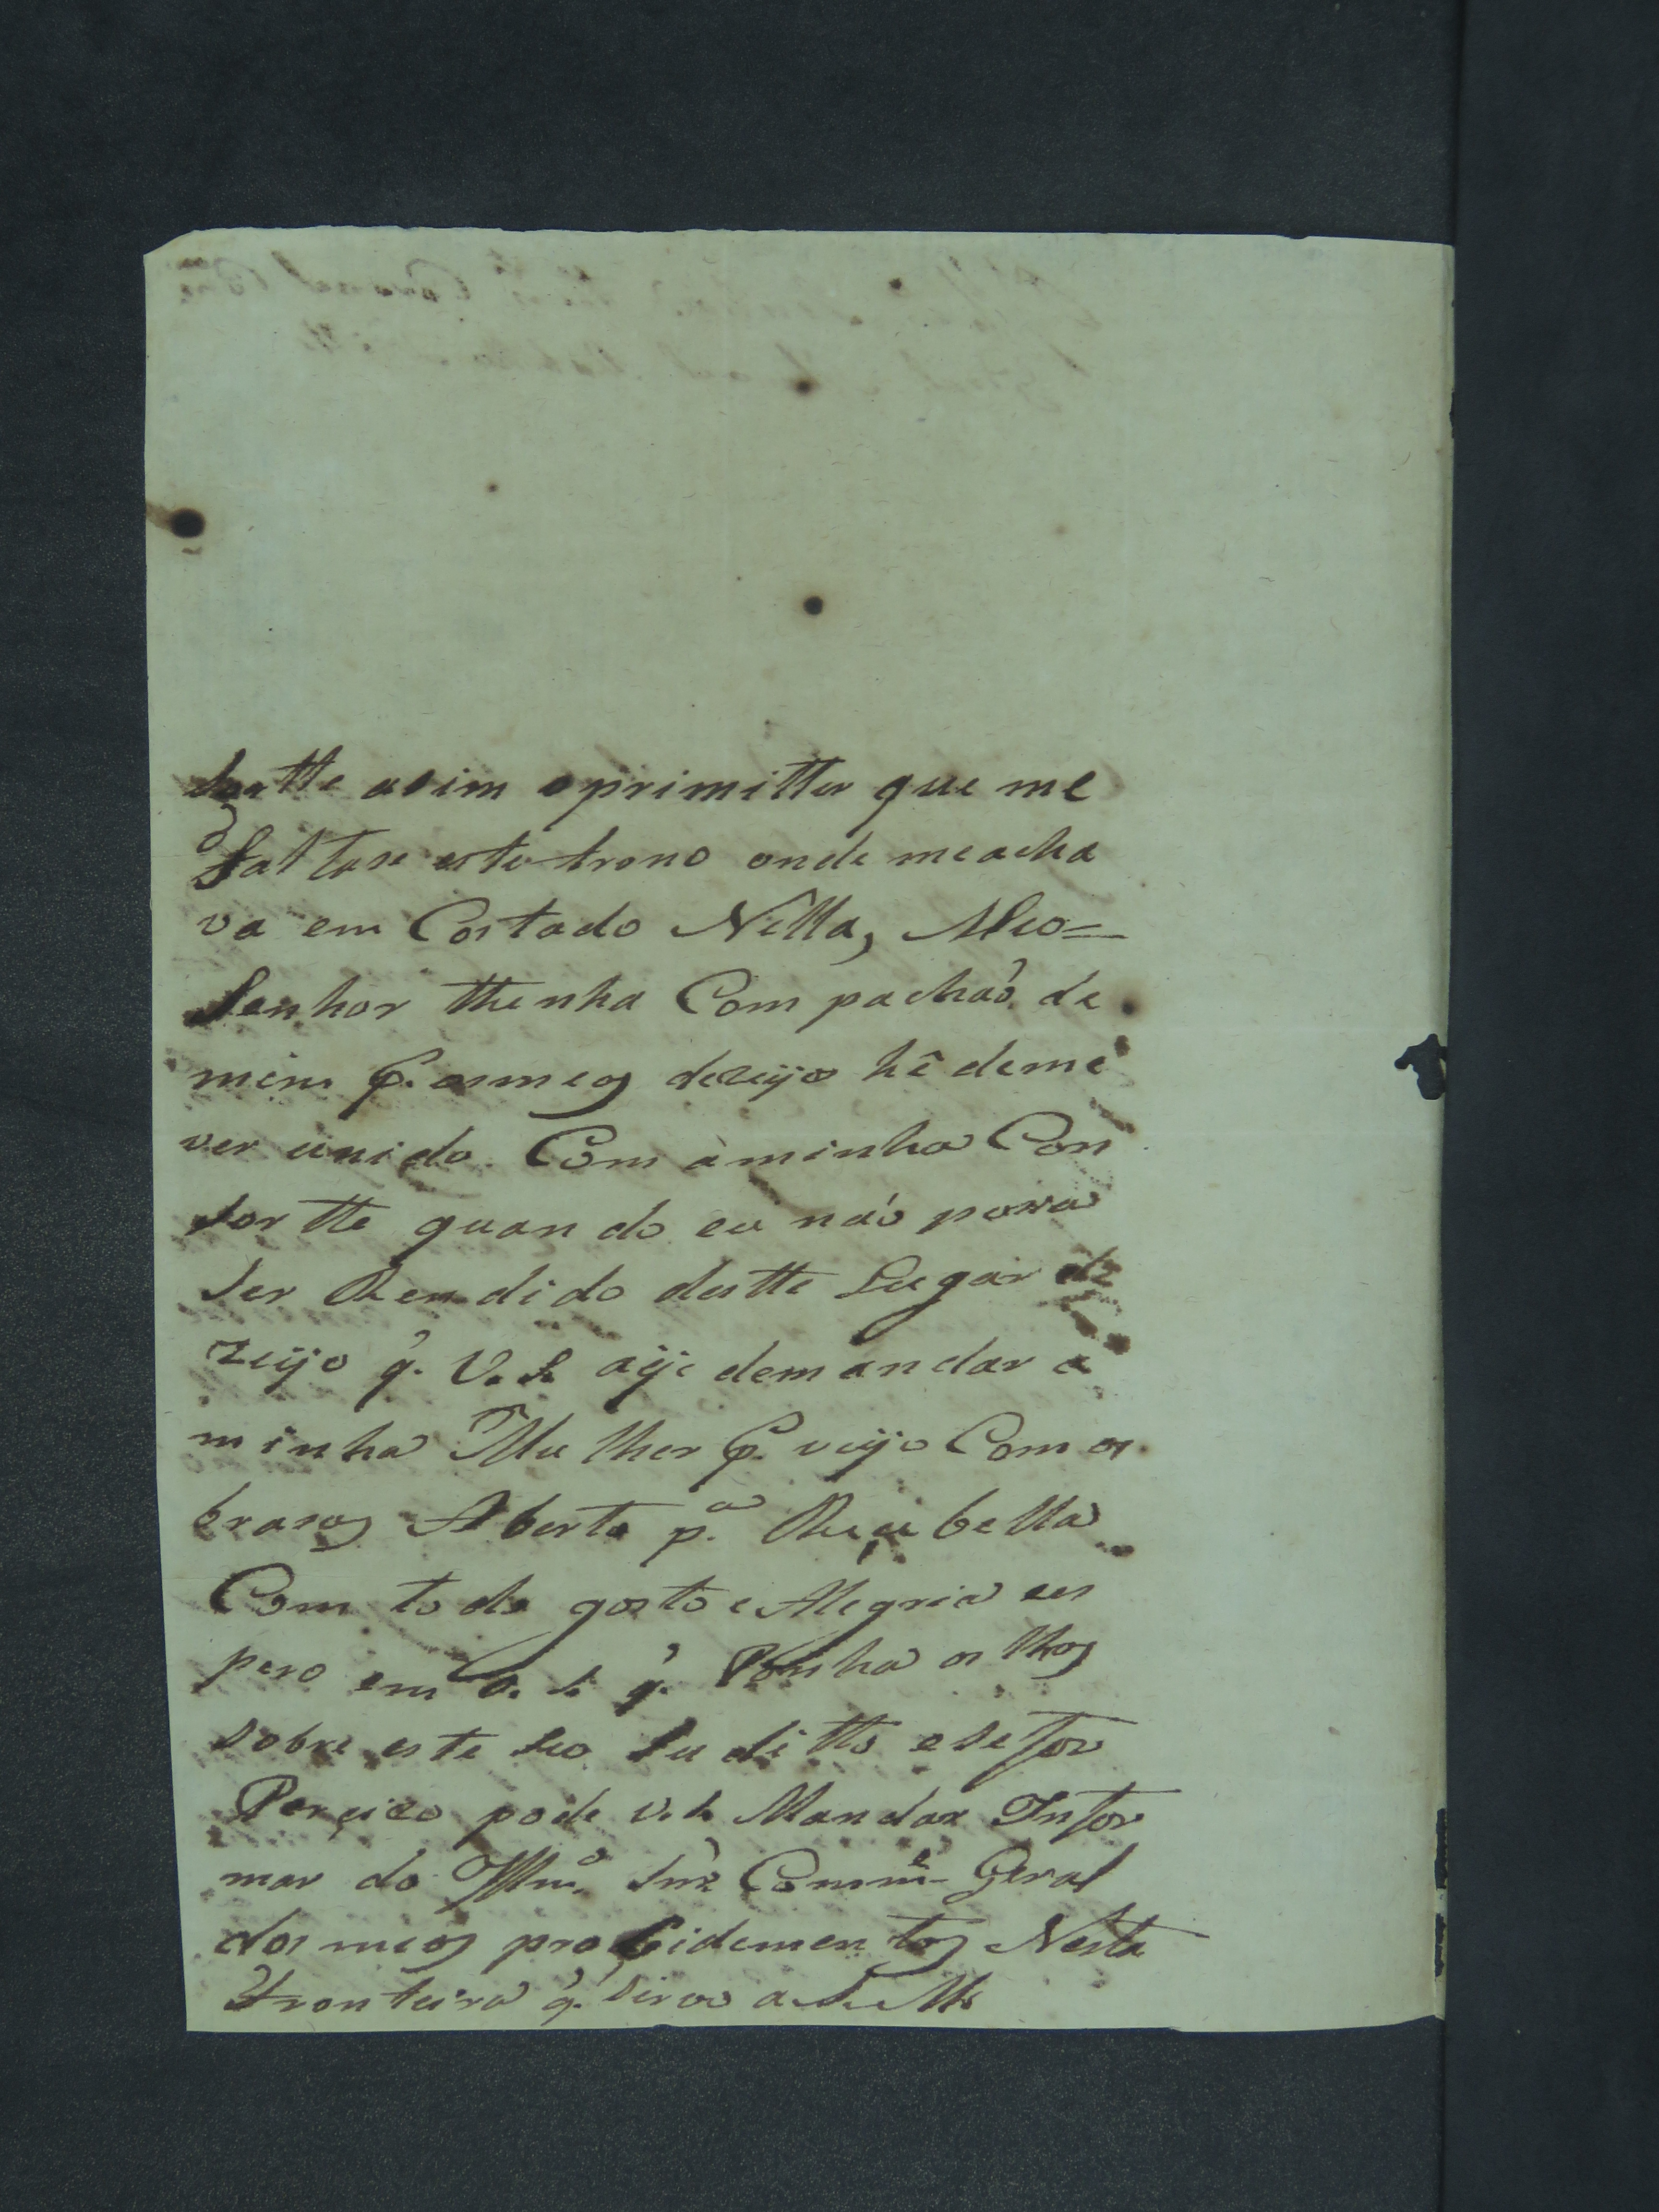 sortte asim oprimitter que me
faltase este trono onde meacha
va em Costado Nella, Meo=
Senhor thenha Com pachaó de
mim P. os meos dezeijos hê deme
ver unido Com àminha Con
sor tte quan do eu naó posa
ser Ren di do destte Lugar de
zeijo q. V. S. aije demandar a
minha Mulher P. veijo Com os
brasos Aberto p.ª Reçebella
Com to do gosto e Alegria es
pero em V. S. q. Ponha os lhos
sobre este seo Su di tto e se for
Perçizo pode V. S. Mandar Infor
mar do Illm.º Snr. Comm.e Geral
dos meos proCidemen tos Nesta
Fronteira q. Sirvo a S. M.